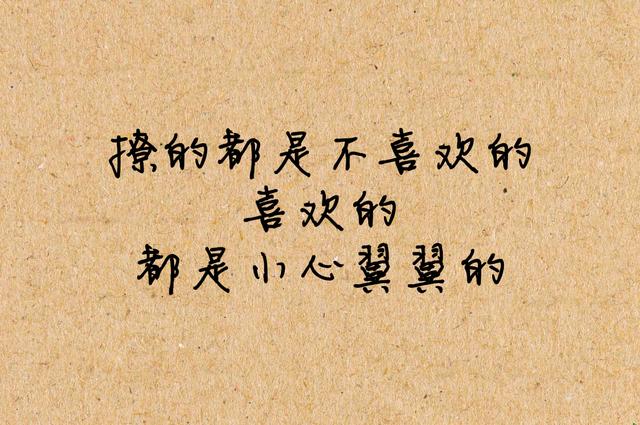 撩的都是不喜欢的
喜欢的
都是小心翼翼的